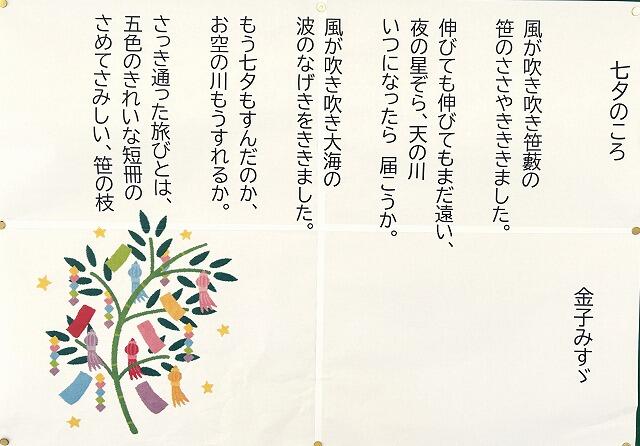 七夕のころ
金子みすゞ
風が吹き吹き笹藪の
笹のささやきききました。
伸びても伸びてもまだ遠い、
夜の星ぞら、天の川
いつになったら 届こうか。
風が吹き吹き大海の
波のなげきをききました。
もう七夕もすんだのか、
お空の川もうすれるか。
さっき通った旅びとは、
五色のきれいな短冊の
さめてさみしい、笹の枝